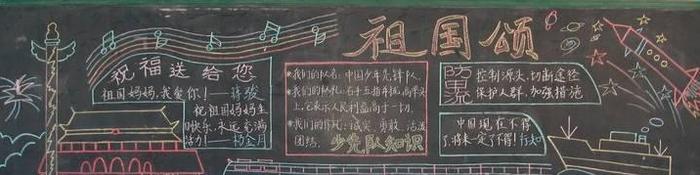 祖国颂
祝福送给您
祖国妈妈,我爱你!——蒋骏
祝祖国妈妈生
日快乐,永远充满
活力!——杨金月
★我们的队名:中国少年先锋队
★我们的队礼:右手五指并拢,高举头
上,它表示人民利益高于一切。
★我们的作风:诚实、勇敢、活泼
团结。
少先队知识
防
流
控制源头,切断途径
保护人群,加强措施
中国现在不得
了,将来一定了不得!